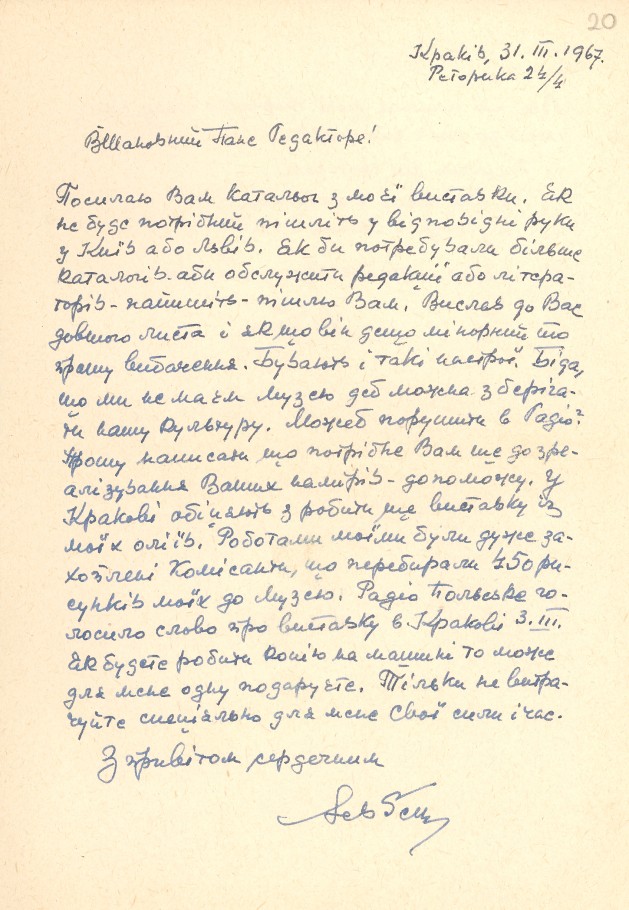 20
Краків, 31. III. 1967.
Реторика 24/4
ВШановний Пане Редакторе!
Посилаю Вам катальог з моєї виставки. Як
не буде потрібний пішліть у відповідні руки
у Київ або Львів. Як би потребували більше
каталогів аби обслужити редакції або літера-
торів - напишіть - пішлю Вам. Вислав до Вас
довшого листа і якщо він дещо мінорний то
прошу вибачення. Бувають і такі настрої. Біда,
що ми не маєм музею деб можна зберіга-
ти нашу культуру. Можеб порушити в Радіо?
Прошу написати що потрібне Вам ще до зре-
алізування Ваших намірів - допоможу. У
Кракові обіцяють зробити ще виставку із
моїх олій. Роботами моїми були дуже за-
хоплені Комісанти, що перебирали 450 ри-
сунків моїх до Музею. Радіо Польське го-
лосило слово про виставку в Кракові 3. III.
Як будете робити копію на машині то може
для мене одну подаруєте. Тільки не витра-
чуйте спеціяльно для мене своєї сили і час.
З привітом сердечним
Лев Ґец